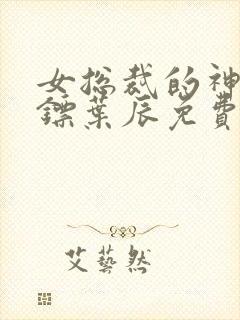 女总裁的神
镖叶辰免费
艾艺然